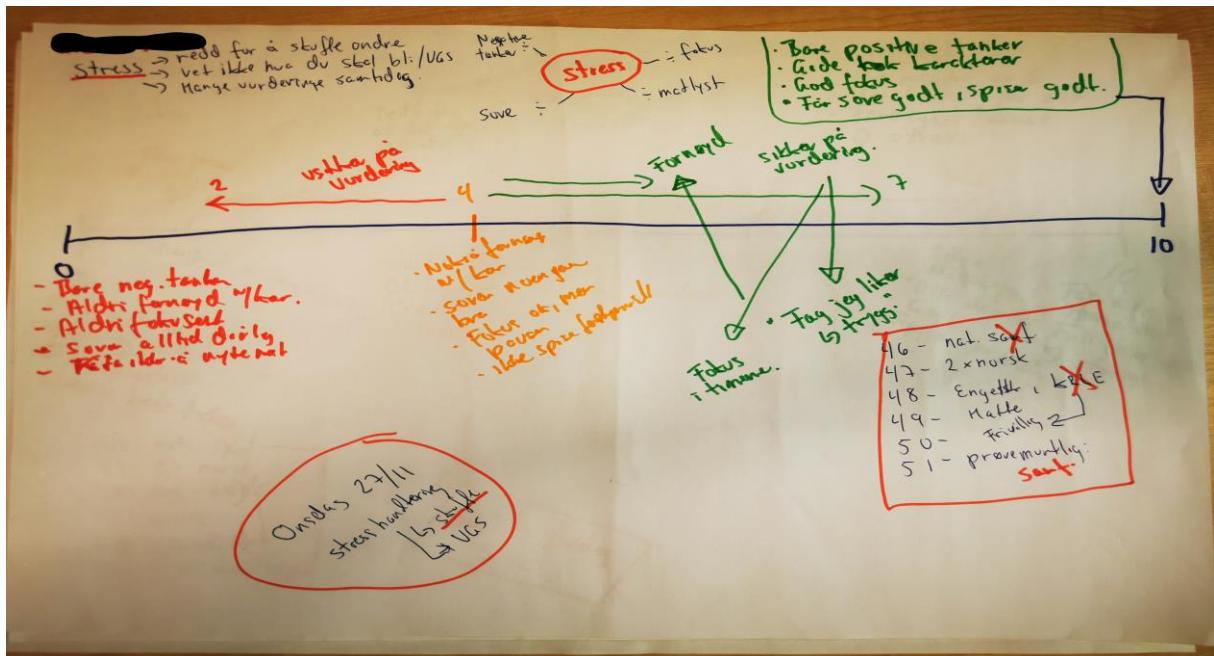 stress → redd for å skuffe andre
→ vet ikke hva du skal bli/VGS
→ Mange vurderinge samtidig.
Negative
tanker ÷
stress
÷ fokus
÷ matlyst
sove ÷
• Bare positive tanker
• Gode karakterer
• God fokus
• Får sove godt, spise godt.
2
usikker på
vurdering
4
Fornøyd
sikker på
vurdering.
7
0
10
- Bare neg. tanker
- Aldri fornøyd m/kar.
- Aldri fokusert
- Sover alltid dårlig
m/kar
• sover noen gan
bra
• Fokus ok, men
• ikke spise
Fokus
i timene.
• Fag jeg liker
↳ trygg"
46 - nat. samf
47 - 2 x norsk
48 - Engelsk, KRLE
49 - Matte
50 - Frivillig
51 - prøvemuntlig:
samf.
Onsdag 27/11
stresshåndtering
↳ skuffe
→ VGS